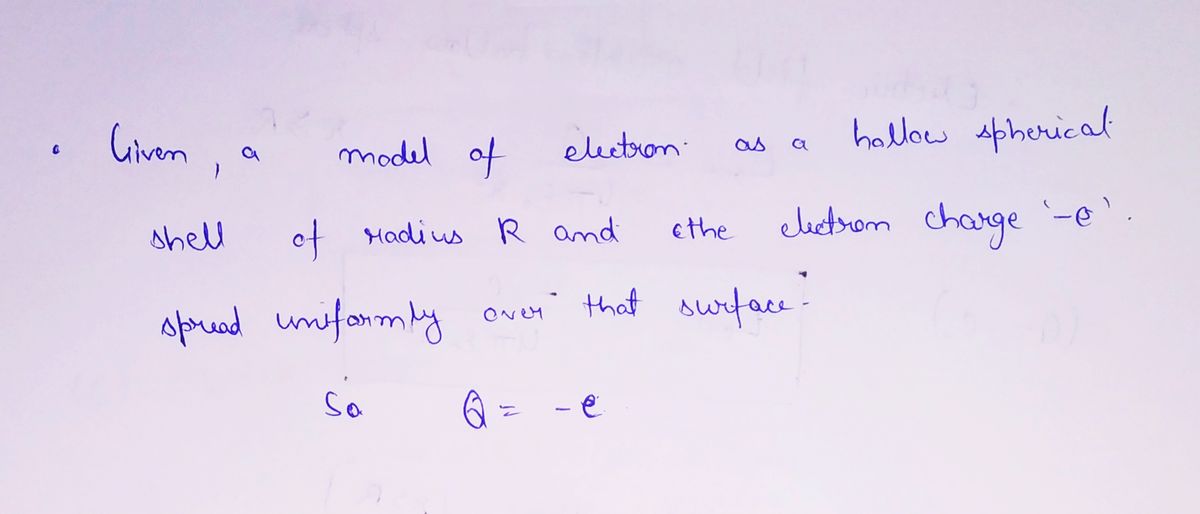 • Given, a model of electron as a hollow spherical
shell of radius R and the electron charge '-e'.
spread uniformly over that surface-
So Q = -e